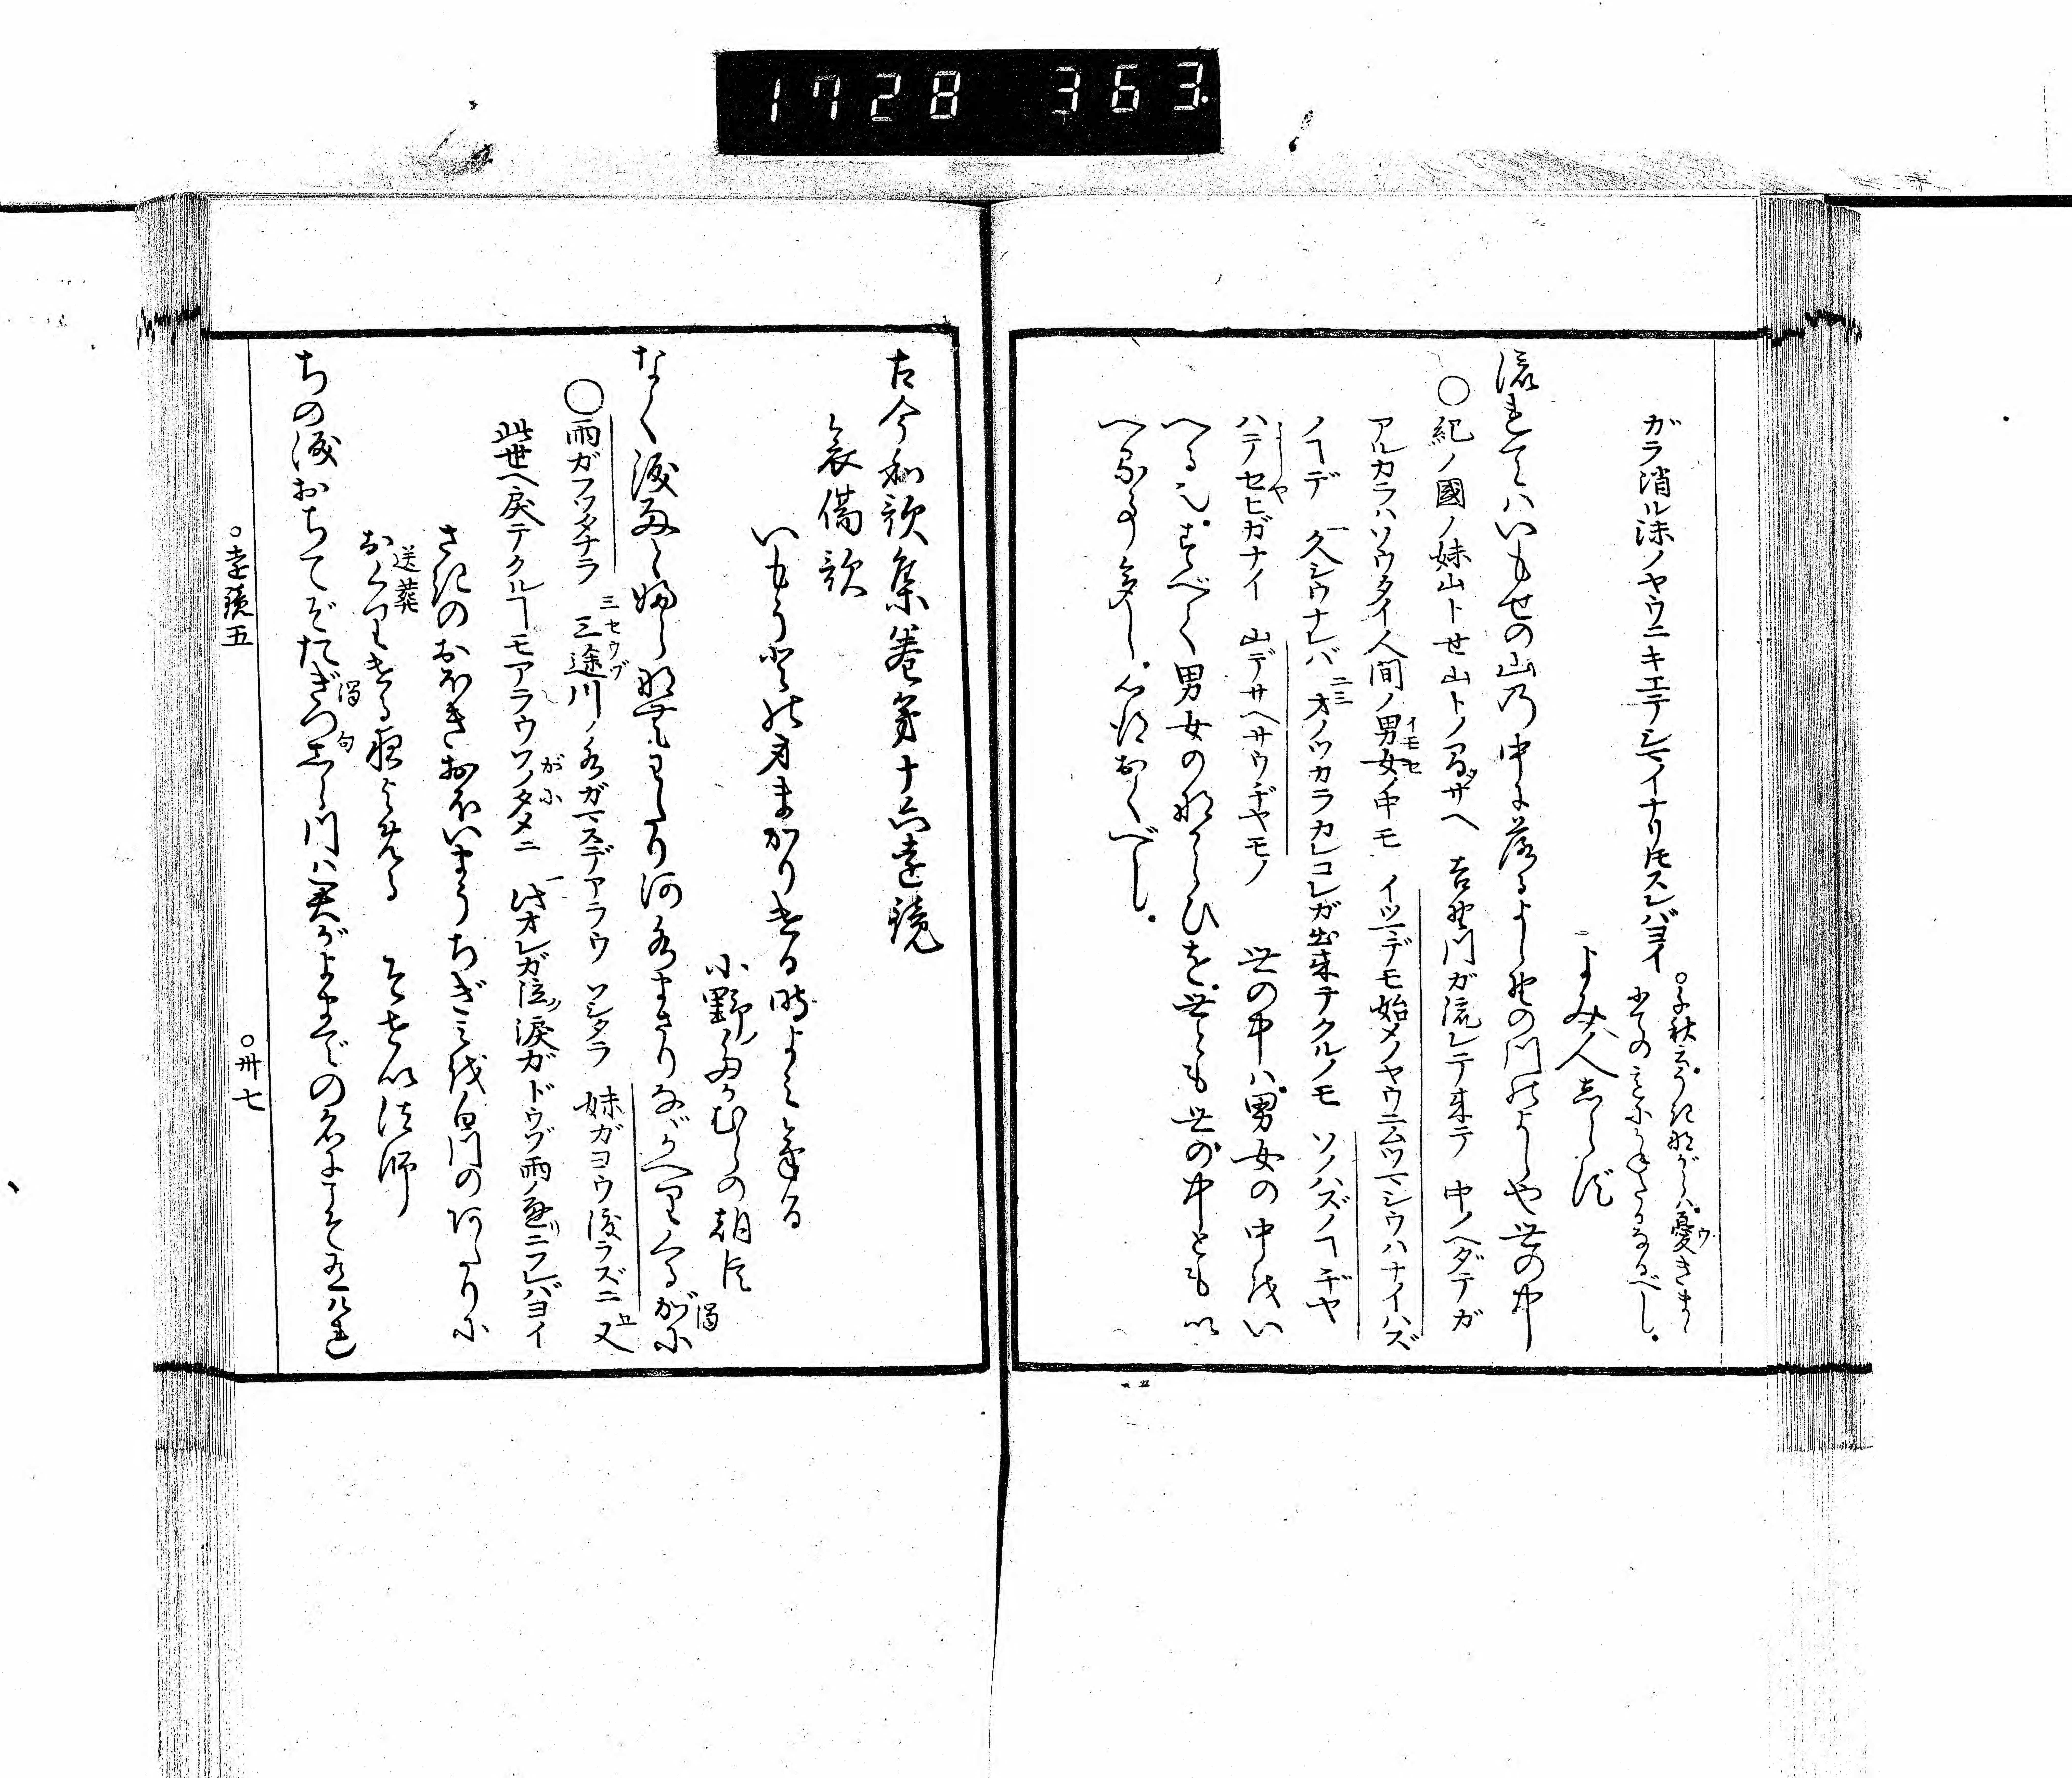 1728 363
ガラ消ル沫ノヤウニキエテシマイナリトモスレバヨイ
○千秋云うきながらハ憂きまゝ
よみ人しらず
流れてハいもせの山の中に落るよしのの川のよしや世の中
○紀ノ國ノ妹山トセ山トノ間ヘサヘ 吉野川ガ流レテ来テ 中ノヘダテガ
アルカラハソウタイ人間ノ男女ノ中モ イツマデモ始メノヤウニムツマシウハナイハズ
イモセ
ノヿデ 久シウナレバ オノヅカラカレコレガ出来テクルノモ ソノハズノヿヂヤ
一
二三
ハテセヒガナイ 山デサヘサウヂヤモノ 世の中ハ男女の中をい
よしや
へる也すべて男女のならひを世とも世の中ともい
へる事多し心得おくべし
古今和歌集巻第十六遠鏡
哀傷歌
いもうとの身まかりける時よみける
小野たかむらの朝臣
なく涙雨とふらなむわたり河水まさりなばかへりくるがに
濁
○雨ガフツタナラ 三途川ノ水ガマスデアラウ ソシタラ 妹ガヨウ渡ラズニ 又
三セウヅ
此世ヘ戻テクルヿモアラウソノタメニ 此オレガ泣ク涙ガドウゾ雨ノ通リニフレバヨイ
がに
さきのおほきおほいまうちぎみを白川のあたりに
おくりける夜よめる そせい法師
送葬
ちの涙おちてぞたぎつしら川ハ君がよまでの名にこそ有けれ
濁
句
○遠鏡五
○卅七